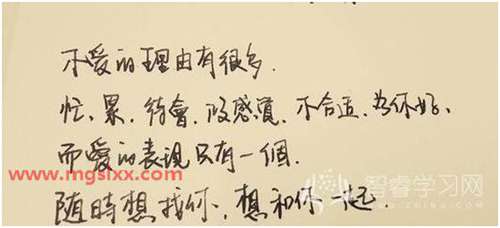 不爱的理由有很多.
忙、累、待會、没感覚、不合适、为你好、
而爱的表現只有一個.
www.mgslxx.com
智睿学习网
随時想找你、想和你一起.